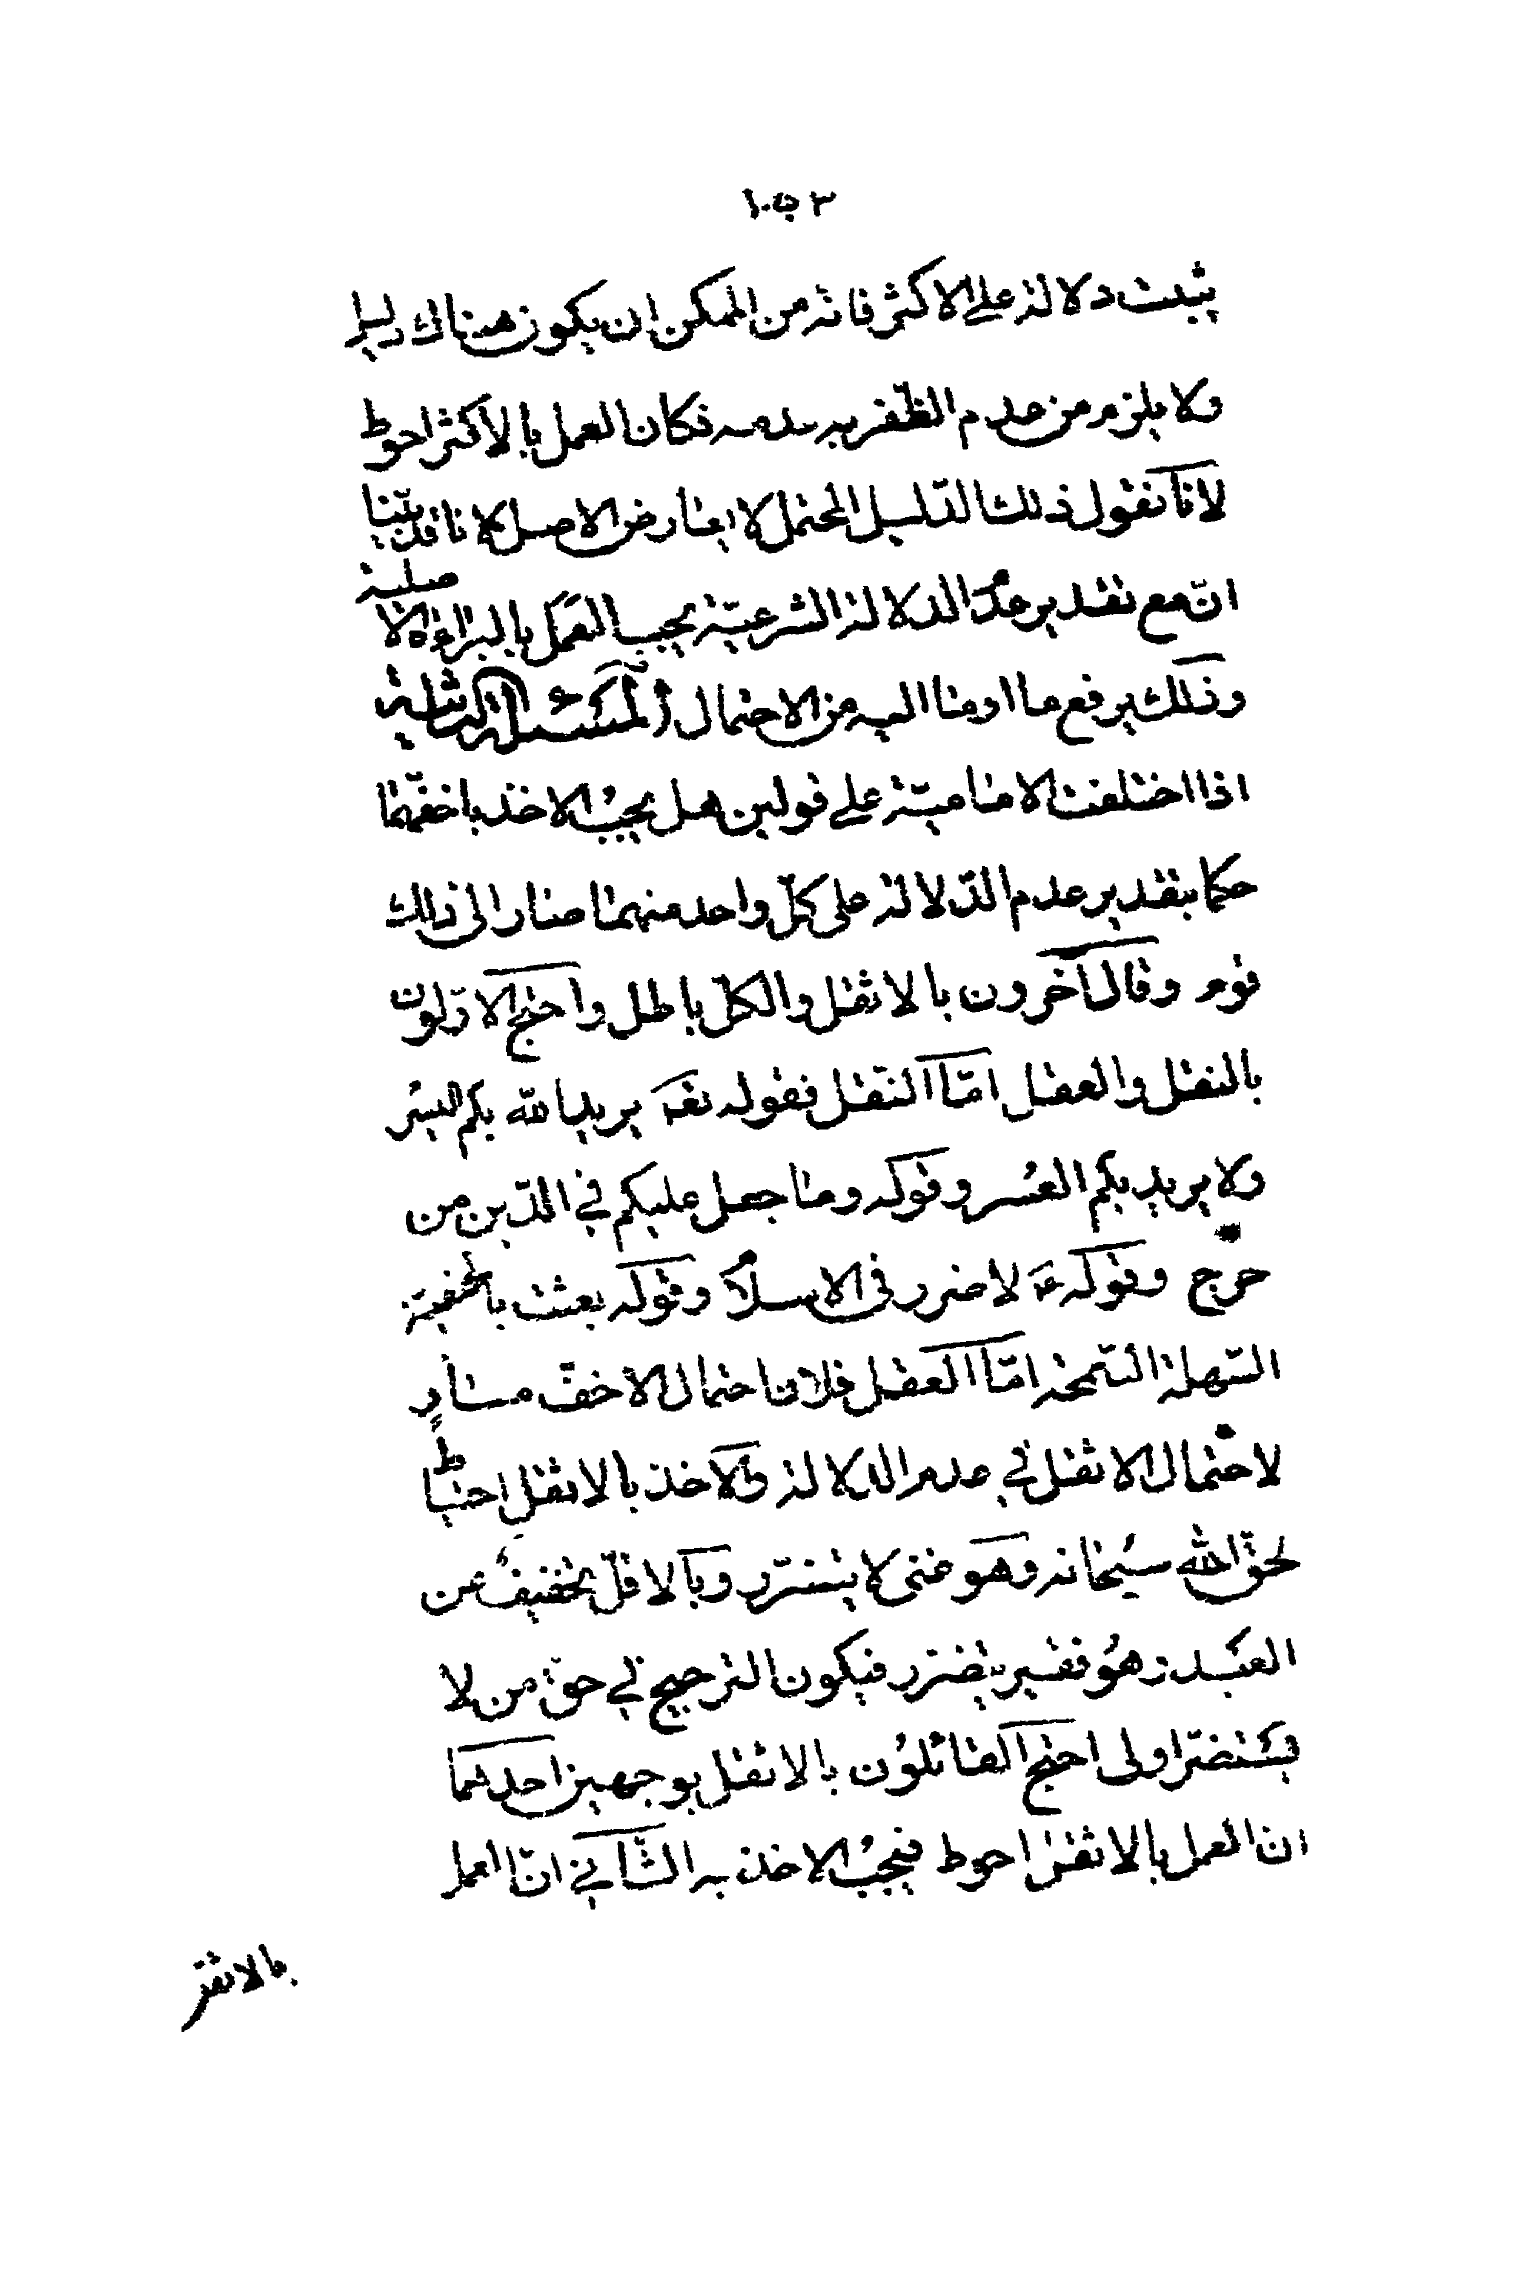 ١٠٥٣
يثبت دلالة على الاكثر فانه من الممكن ان يكون هناك دليل
ولا يلزم من عدم الظفر به عدمه فكان العمل بالاكثر احوط
لانا نقول ذلك الدليل المحتمل لا يعارض الاصل لانا قد بيّنا
انّ مع تقدير عدم الدلالة الشرعيّة يجب العمل بالبراءة الاصلية
وذلك يرفع ما اومنا اليه من الاحتمال المسئلة الثالثة
اذا اختلفت الاماميّة على قولين هل يجب الاخذ باخفّهما
حكما بتقدير عدم الدّلالة على كلّ واحد منهما صار الى ذلك
قوم وقال آخرون بالاثقل والكلّ باطل واحتج الاوّلون
بالنقل والعقل امّا النّقل فقوله تعه يريد الله بكم اليسر
ولا يريد بكم العسر وقوله وما جعل عليكم في الدّين من
حرج وقوله ع لا ضرر في الاسلام وقوله بعثت بالحنفيّة
السّهلة السّمحة امّا العقل فلان احتمال الاخفّ مساو
لاحتمال الاثقل في عدم الدلالة والاخذ بالاثقل احتياط
لحقّ الله سبحانه وهو غنى لا يتضرّر وبالاقلّ تخفيف عن
العبد وهو فقير يتضرّر فيكون الترجيح في حقّ من لا
يتضرّر اولى احتج القائلون بالاثقل بوجهين احدهما
ان العمل بالاثقل احوط فيجب الاخذ به الثّاني انّ العمل
بالاثقل